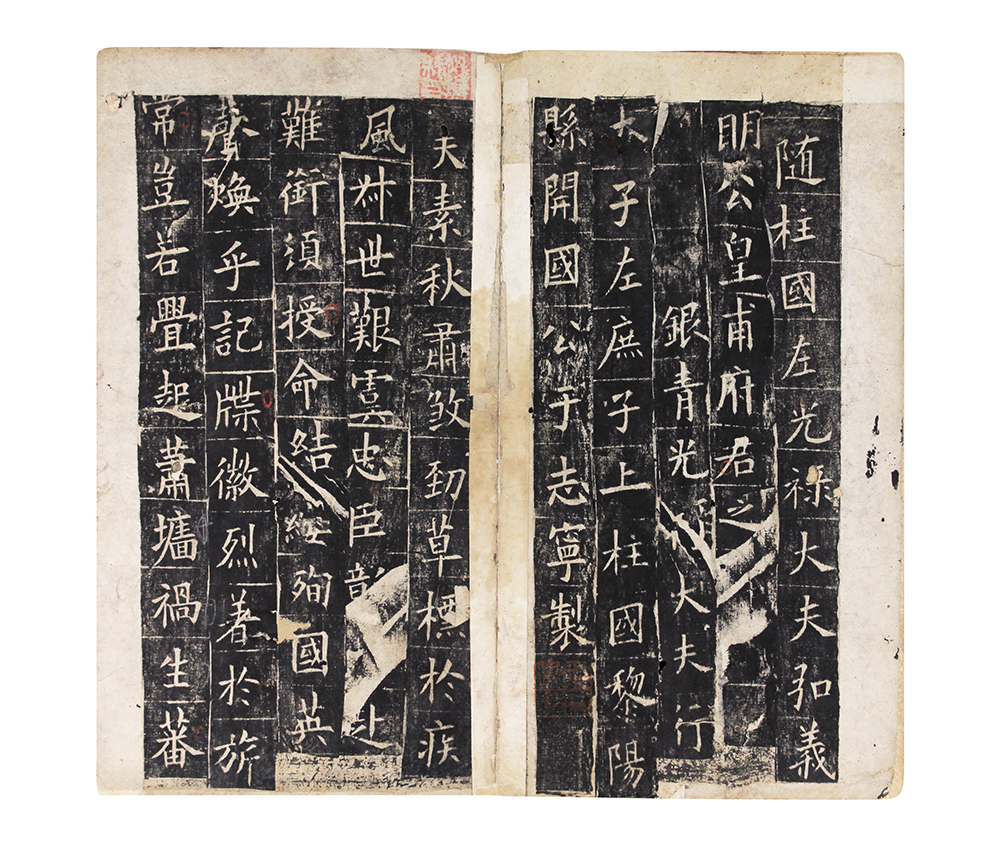 随柱國左光禄大夫弘義
明公皇甫府君之
銀青光大夫行
太子左庶子上柱國黎陽
縣開國公于志寧製
夫素秋肅煞劲草標於疾
風叔世艱虞忠臣彰赴
難銜須授命結纓殉國英
聲煥乎記牒徽烈著於旂
常豈若疊起蕭墻禍生蕃